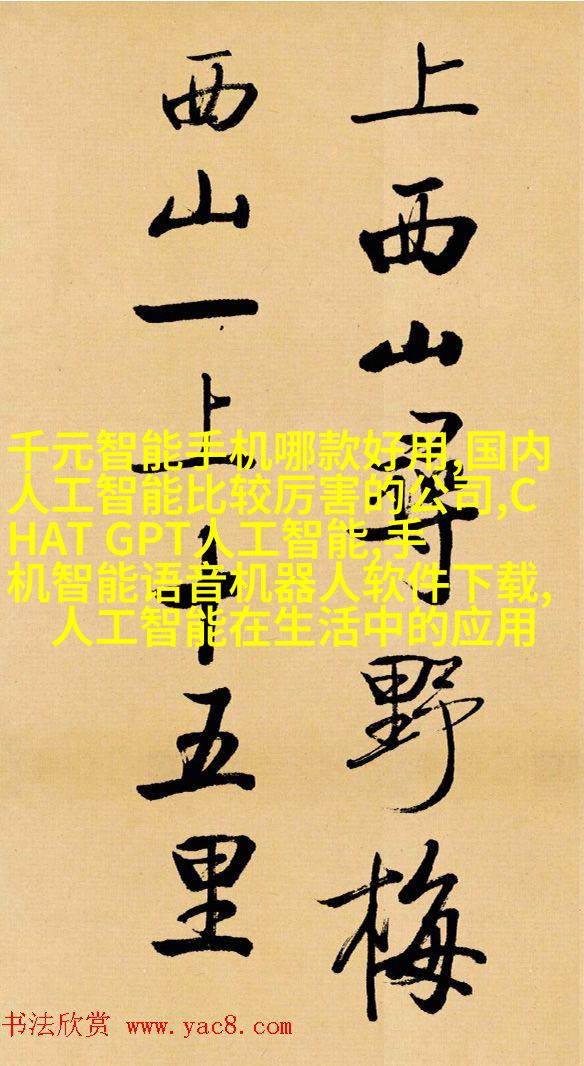 上西山尋野梅
西山一上十五里
千元智能手机哪款好用,国内
人工智能比较厉害的公司,C
HAT GPT人工智能,手
机智能语音机器人软件下载,
人工智能在生活中的应用
书法欣赏 www.yac8.com